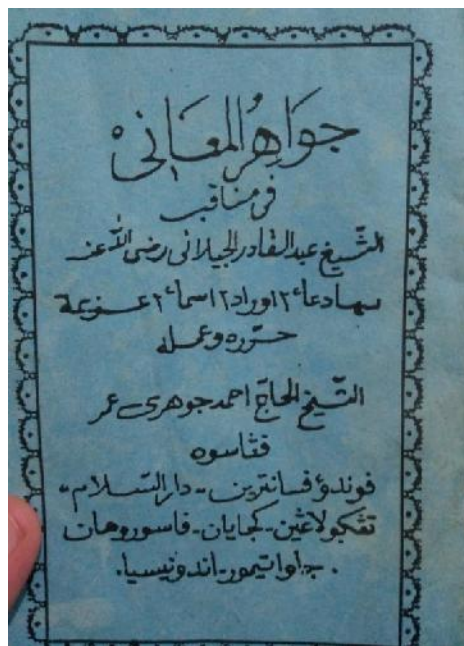 جَوَاهِرُ المَعَانِى
فى مناقب
الشّيخ عبد القادر الجيلانى رضى الله عنه
بهادعا٢ اوراد٢ اسما٢ عزيمة
حرّره وعمله
الشّيخ الحاجّ احمد جوهرى عمر
فڠاسوه
فوندؤ فسانترين - دار السّلام -
تڠكولاڠين - كجايان - فاسوروهان
. جاوا تيمور - اندونيسيا .